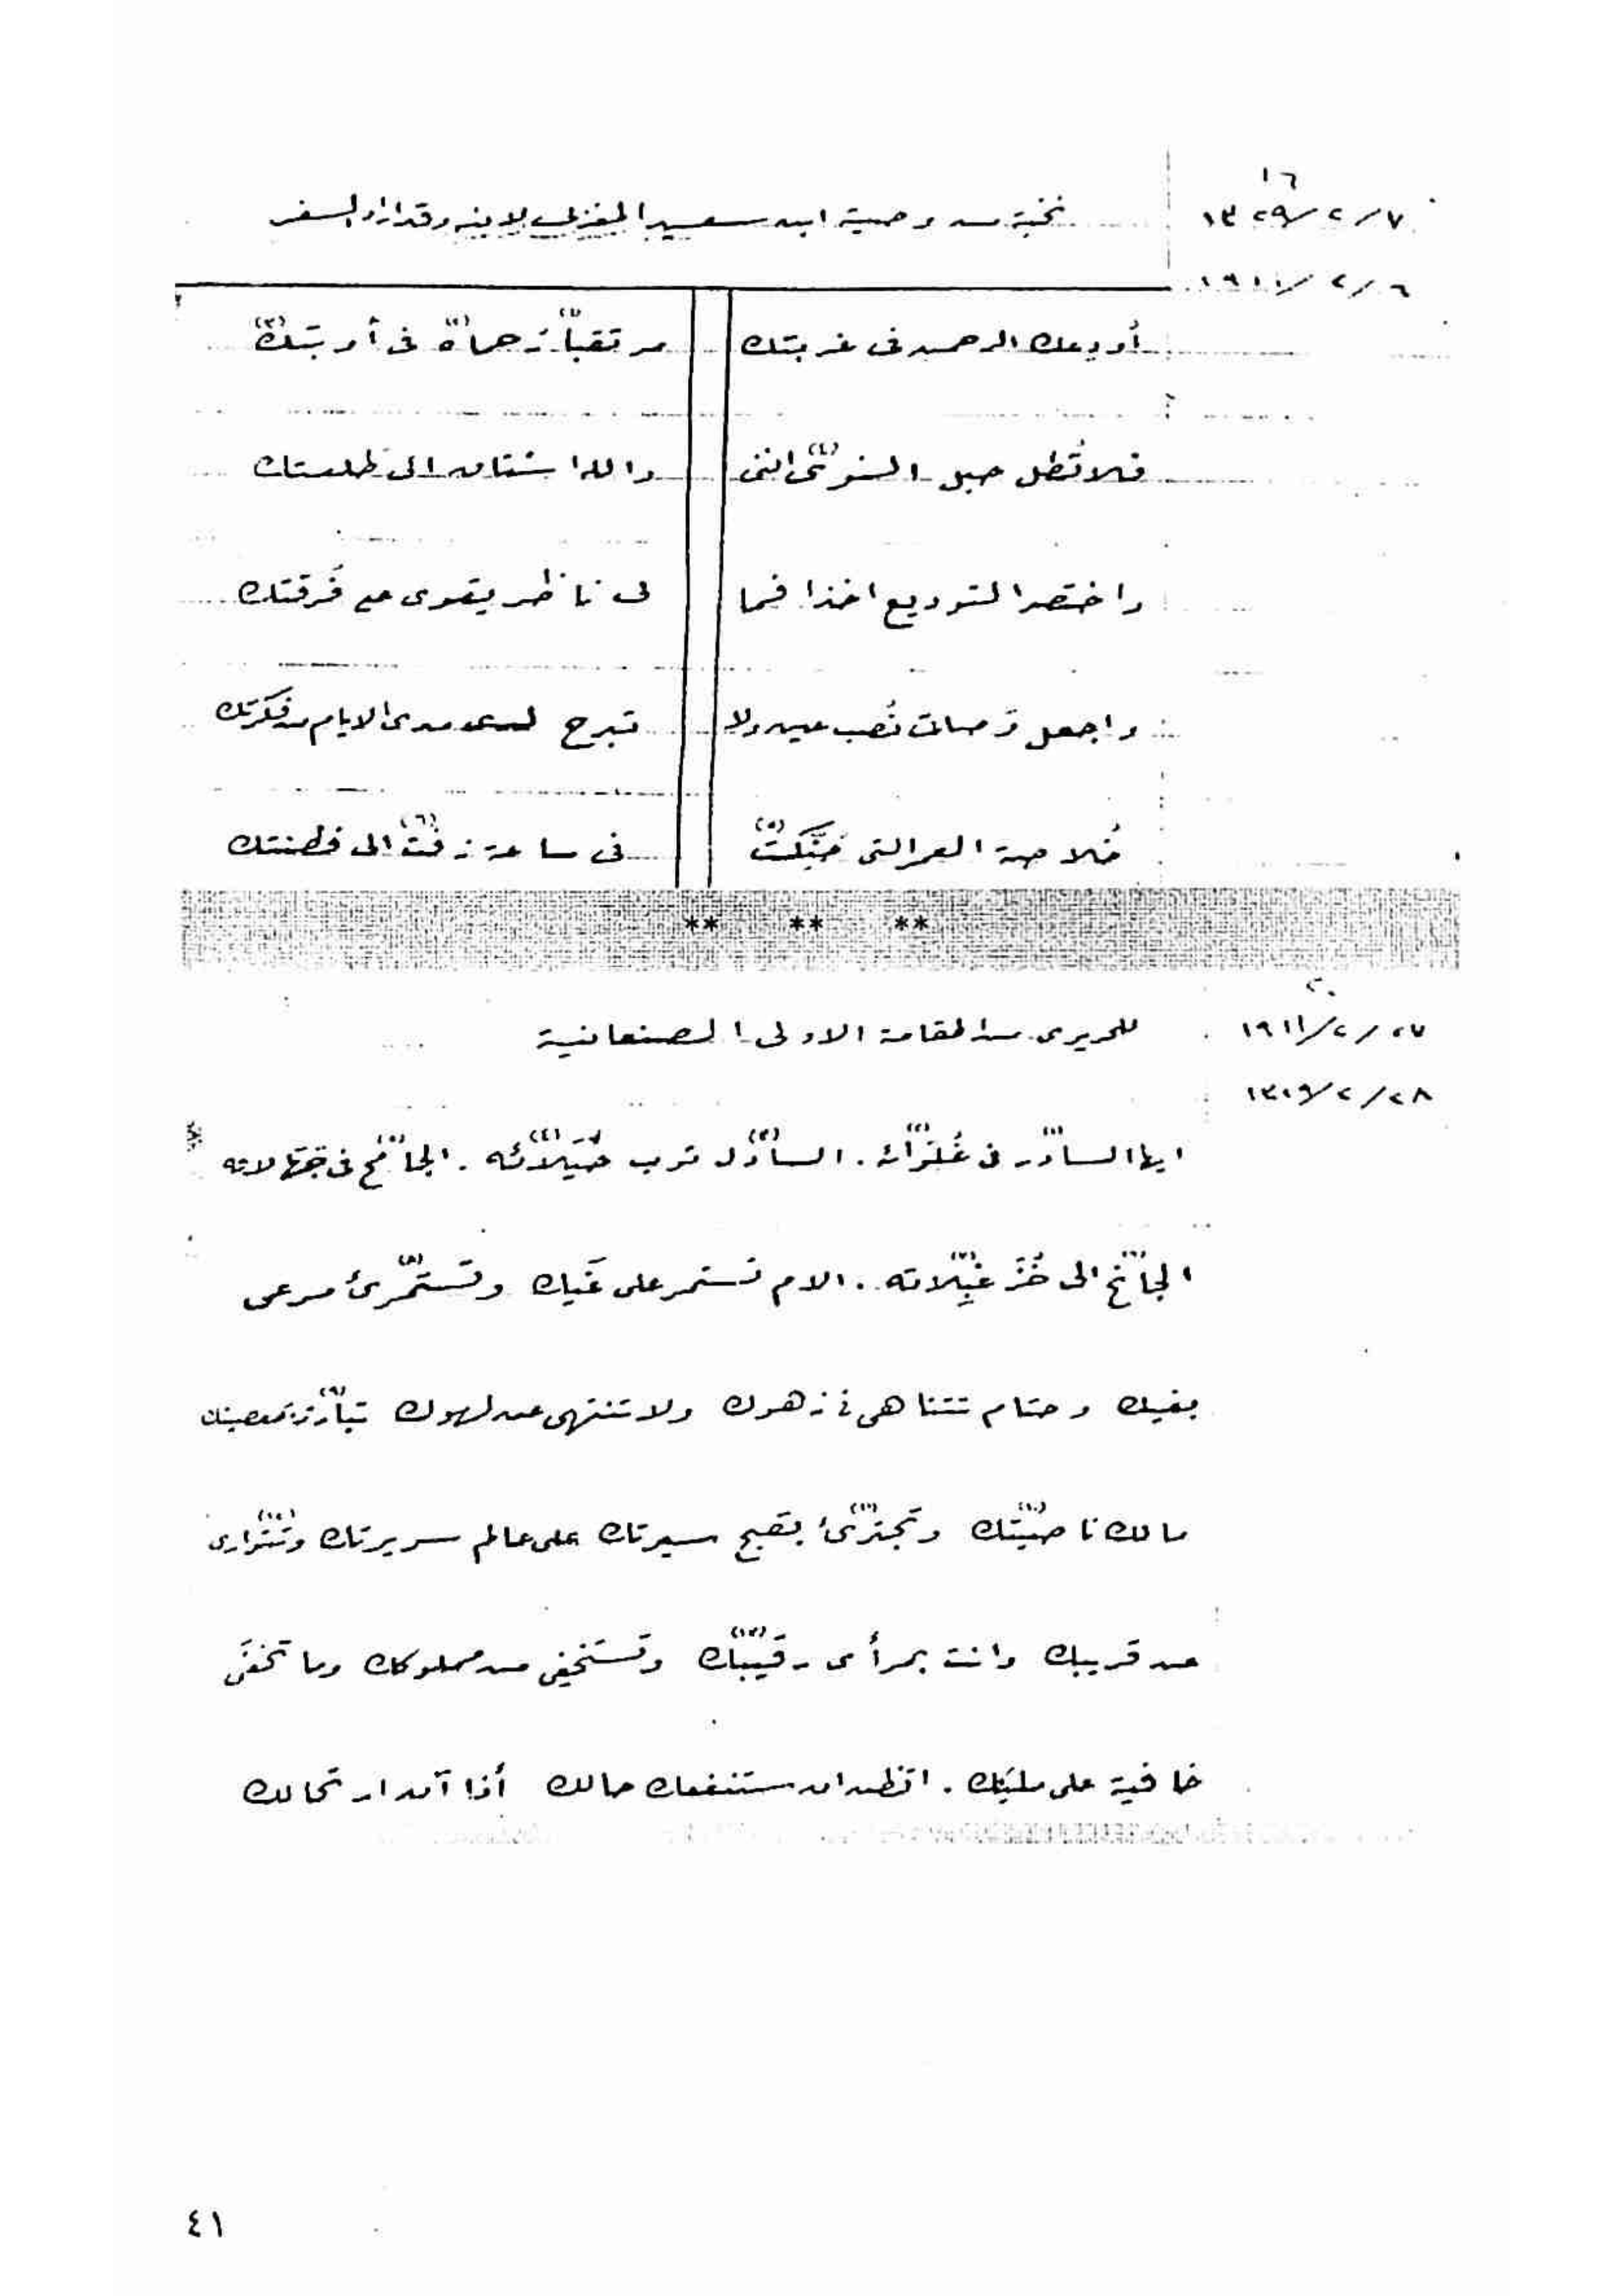 ١٦
١٣٢٩/٢/٧ نخبة من وصية ابن سعيد المغربي لابنه وقد اراد السفر
١٩١١/٢/٦
أودعك الرحمن فى غربتك مرتقباً(١) رحماه(٢) فى أوبتك(٣)
فلا تُطل حبل النوى(٤) اننى والله اشتاق الى طلعتك
واختصر التوديع اخذا فما لى ناظر يقوى على فُرقتك
واجعل وَصاتى نُصب عين ولا تبرح لدى مدى الايام من فكرتك
خُلاصة العمر التى حَنّكتْ(٥) فى ساعة زفت(٦) الى فطنتك
** ** **
٢٠
١٩١١/٢/٢٧ للحريرى من المقامة الاولى الصنعانية
١٣٢٩/٢/٢٨
ايها السادر(١) فى غُلَوائه(٢). السادل(٣) ثوب خُيَلائه(٤). الجامح(٥) فى جَهالاته
الجانح(٦) الى خُزَعْبِلاته(٧). الام تستمر على غَيك وتَستَمْرئ(٨) مرعى
بغيك وحتام تتناهى فى زهوك ولا تنتهى عن لهوك تبارز(٩) بمعصيتك
مالك ناصيتك(١٠) وتجترئ(١١) بقبح سيرتك على عالم سريرتك وتَتَوارى(١٢)
عن قريبك وانت بمرأى رقيبك(١٣) وتَستَخفِى من مملوكك وما تخفَى
خافية على مليكك. اتظن ان ستنفعك حالك أذا آن ارتحالك
٤١